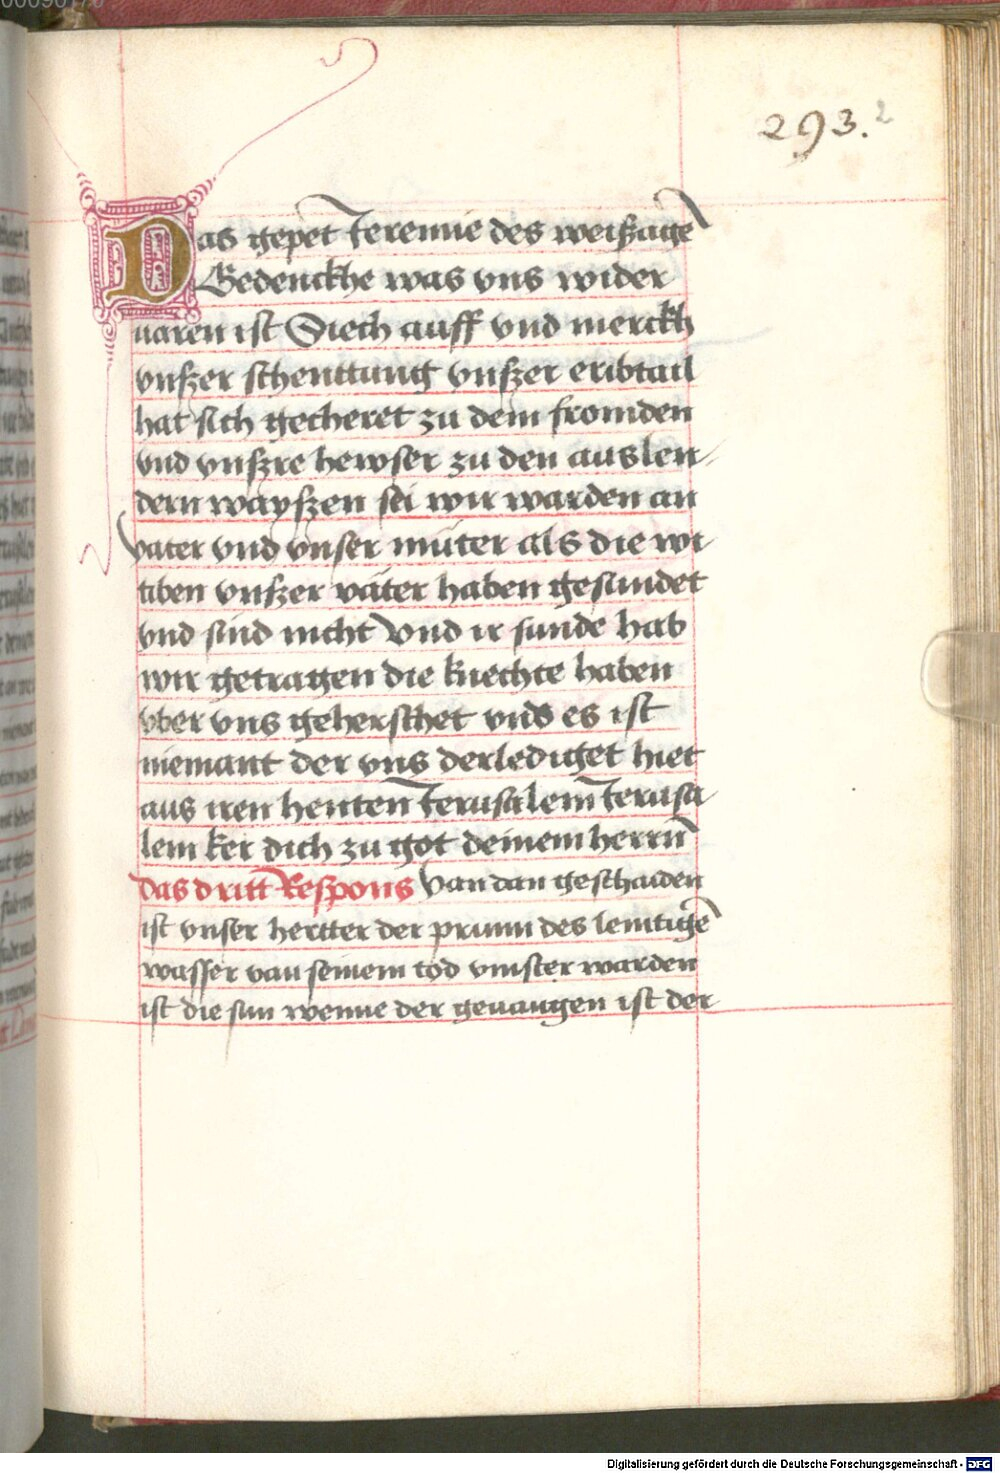 293. 2
Das gepet Jeremie des weissagē
Gedenckhe was vns wider
uaren ist Siech auff vnd merckh
vnszer schenttung vnszer eribtail
hat sich gecheret zu dem fromden
vnd vnszre hewser zu den auslen-
dern wayszen sei wir warden an
vater vnd vnser muter als die wi
tiben vnszer väter haben gesundet
vnd sind nicht vnd ir sunde hab
wir getragen die knechte haben
vber vns geherschet vnd es ist
niemant der vns derlediget hiet
aus iren henten Jerusalem Jerusa
lem ker dich zu got deinem herrn
das dritt Respons Van dan geschaiden
ist vnser hertter der prunn des lemtigē
wasser van seinem tod vinster warden
ist die sun wenne der geuangen ist der
Digitalisierung gefördert durch die Deutsche Forschungsgemeinschaft - DFG